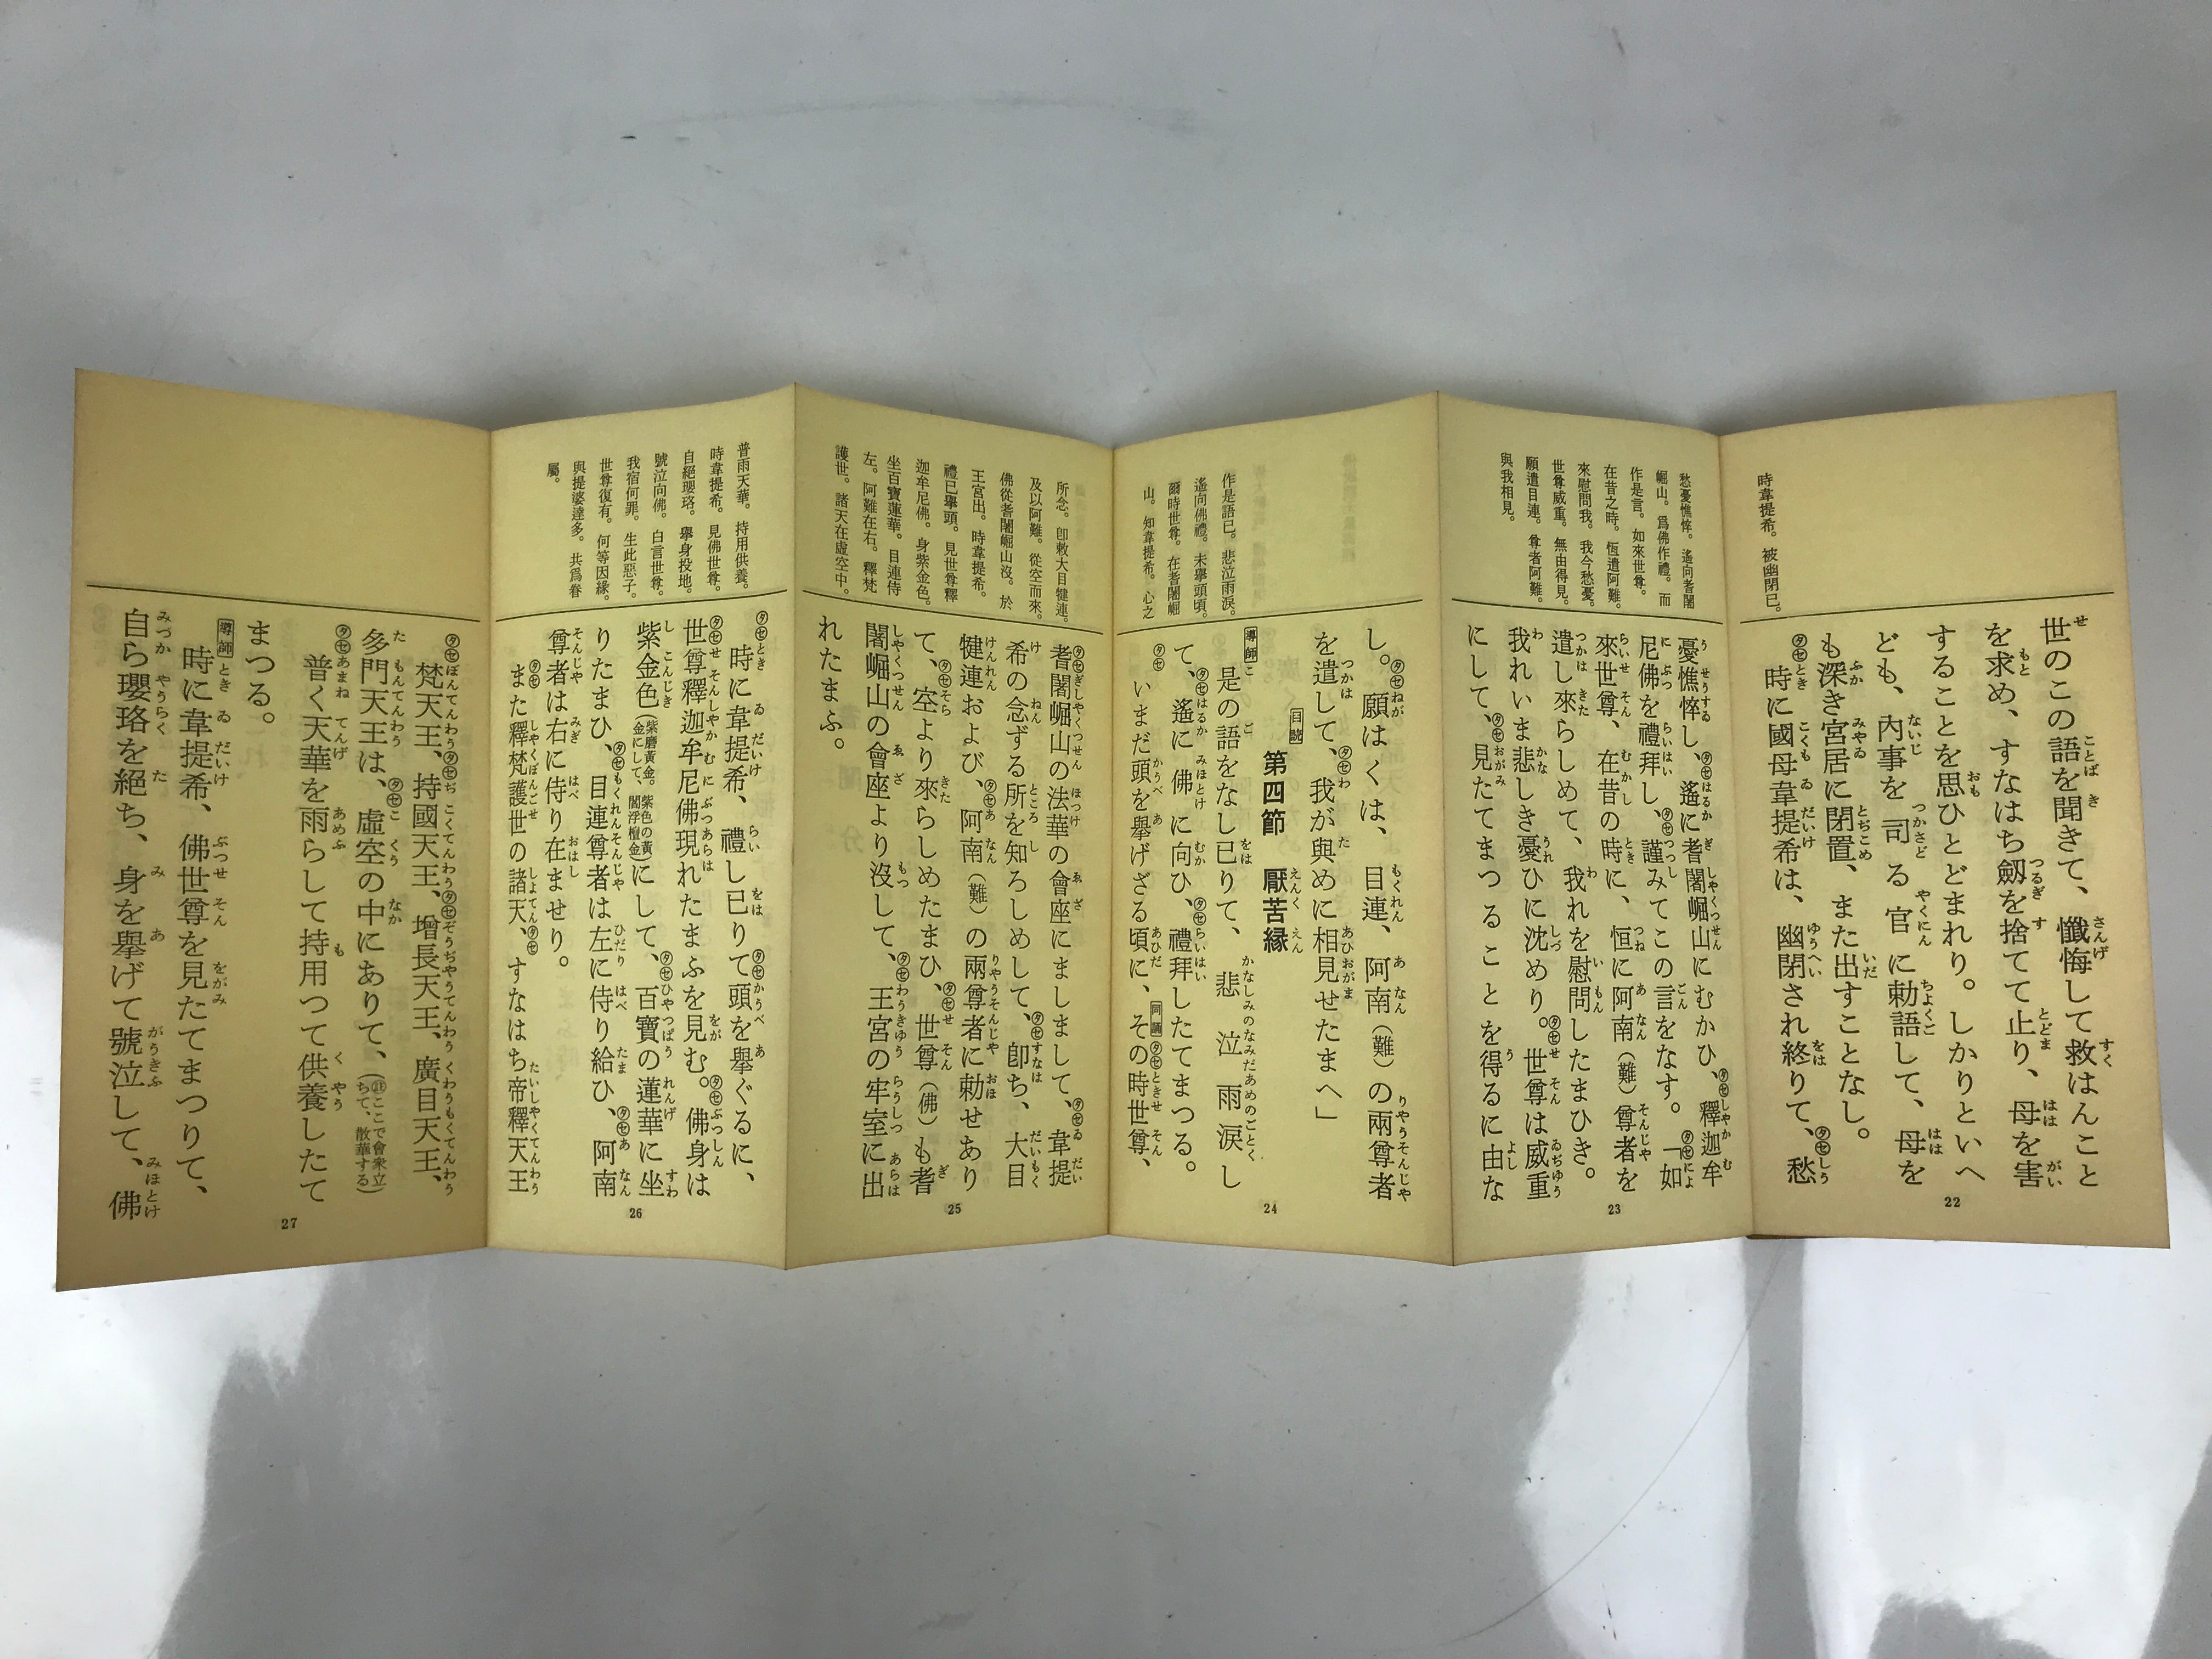 時韋提希。被幽閉已。
世のこの語を聞きて、懺悔して救はんこと
を求め、すなはち劔を捨てて止り、母を害
することを思ひとどまれり。しかりといへ
ども、內事を司る官に勅語して、母を
も深き宮居に閉置、また出すことなし。
時に國母韋提希は、幽閉され終りて、愁
22
愁憂憔悴。遙向耆闍
崛山。爲佛作禮。而
作是言。如來世尊。
在昔之時。恆遣阿難。
來慰問我。我今愁憂。
世尊威重。無由得見。
願遣目連。尊者阿難。
與我相見。
憂憔悴し、遙に耆闍崛山にむかひ、釋迦牟
尼佛を禮拜し、謹みてこの言をなす。「如
來世尊、在昔の時に、恒に阿南(難)尊者を
遣し來らしめて、我れを慰問したまひき。
我れいま悲しき憂ひに沈めり。世尊は威重
にして、見たてまつることを得るに由な
23
作是語已。悲泣雨淚。
遙向佛禮。未擧頭頃。
爾時世尊。在耆闍崛
山。知韋提希。心之
し。願はくは、目連、阿南(難)の兩尊者
を遣して、我が與めに相見せたまへ」
目読
第四節 厭苦緣
導師 是の語をなし已りて、悲泣雨淚し
て、遙に佛に向ひ、禮拜したてまつる。
いまだ頭を擧げざる頃に、同誦その時世尊、
24
所念。卽敕大目犍連。
及以阿難。從空而來。
佛從耆闍崛山沒。於
王宮出。時韋提希。
禮已擧頭。見世尊釋
迦牟尼佛。身紫金色。
坐百寶蓮華。目連侍
左。阿難在右。釋梵
護世。諸天在虛空中。
耆闍崛山の法華の會座にましまして、韋提
希の念ずる所を知ろしめして、卽ち、大目
犍連および、阿南(難)の兩尊者に勅せあり
て、空より來らしめたまひ、世尊(佛)も耆
闍崛山の會座より沒して、王宮の牢室に出
れたまふ。
25
普雨天華。持用供養。
時韋提希。見佛世尊。
自絕瓔珞。擧身投地。
號泣向佛。白言世尊。
我宿何罪。生此惡子。
世尊復有。何等因緣。
與提婆達多。共爲眷
屬。
時に韋提希、禮し已りて頭を擧ぐるに、
世尊釋迦牟尼佛現れたまふを見む。佛身は
紫金色(紫磨黃金。紫色の黃金にして、閻浮檀金)にして、百寶の蓮華に坐
りたまひ、目連尊者は左に侍り給ひ、阿南
尊者は右に侍り在ませり。
また釋梵護世の諸天、すなはち帝釋天王
26
梵天王、持國天王、增長天王、廣目天王、
多門天王は、虛空の中にありて、(註ここで會衆立ちて、散華する)
普く天華を雨らして持用つて供養したて
まつる。
導師 時に韋提希、佛世尊を見たてまつりて、
自ら瓔珞を絕ち、身を擧げて號泣して、佛
27